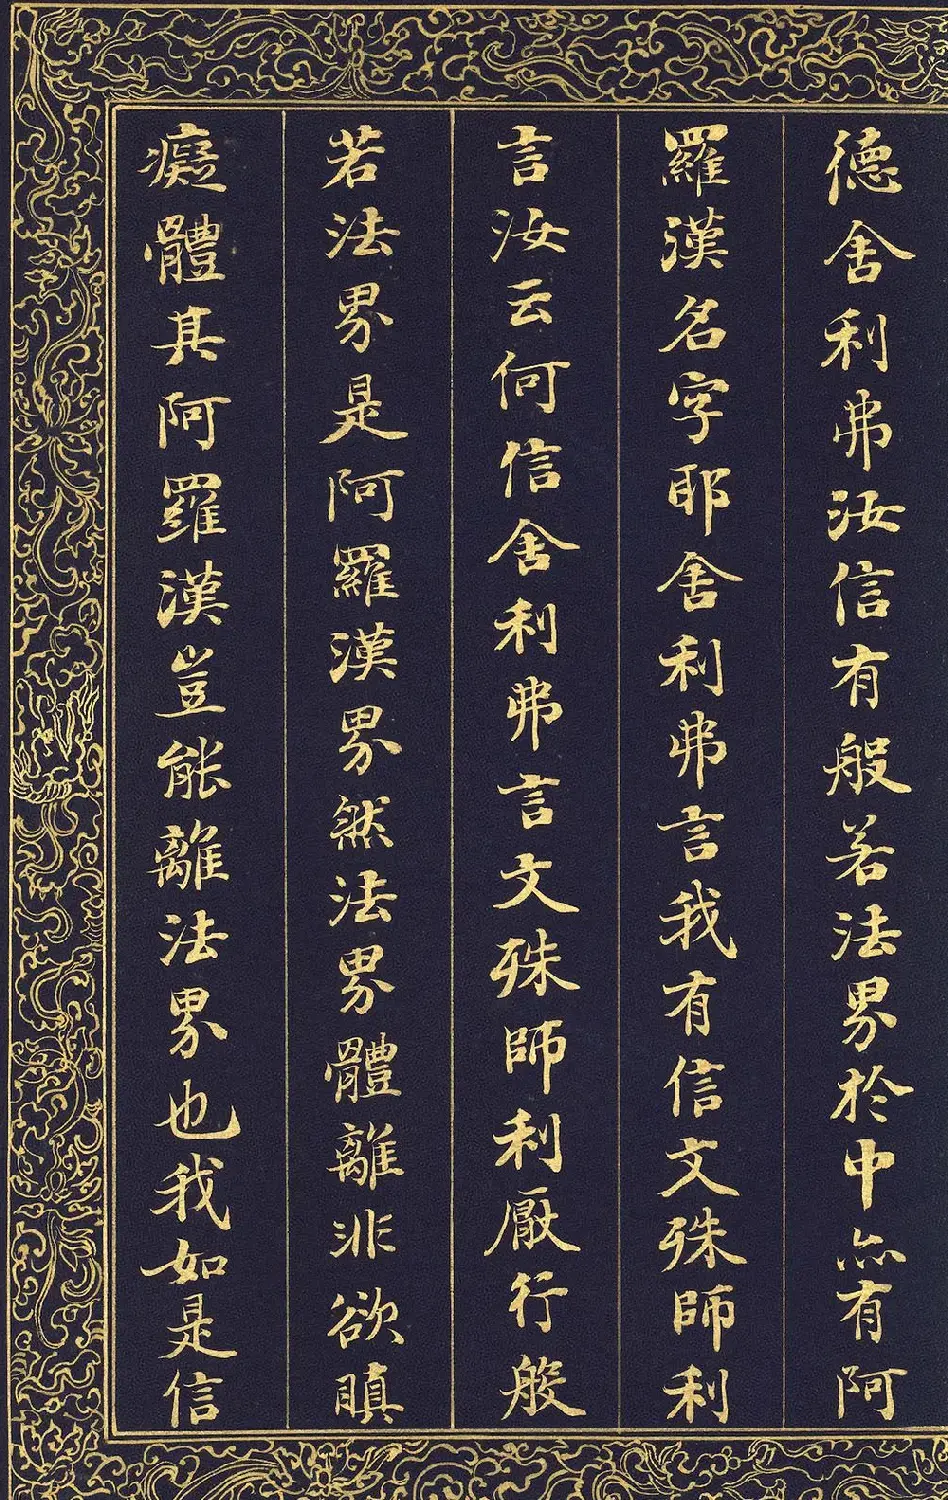 德舍利弗汝信有般若法界於中亦有阿
羅漢名字耶舍利弗言我有信文殊師利
言汝云何信舍利弗言文殊師利厭行般
若法界是阿羅漢界然法界體離非欲瞋
癡體其阿羅漢豈能離法界也我如是信